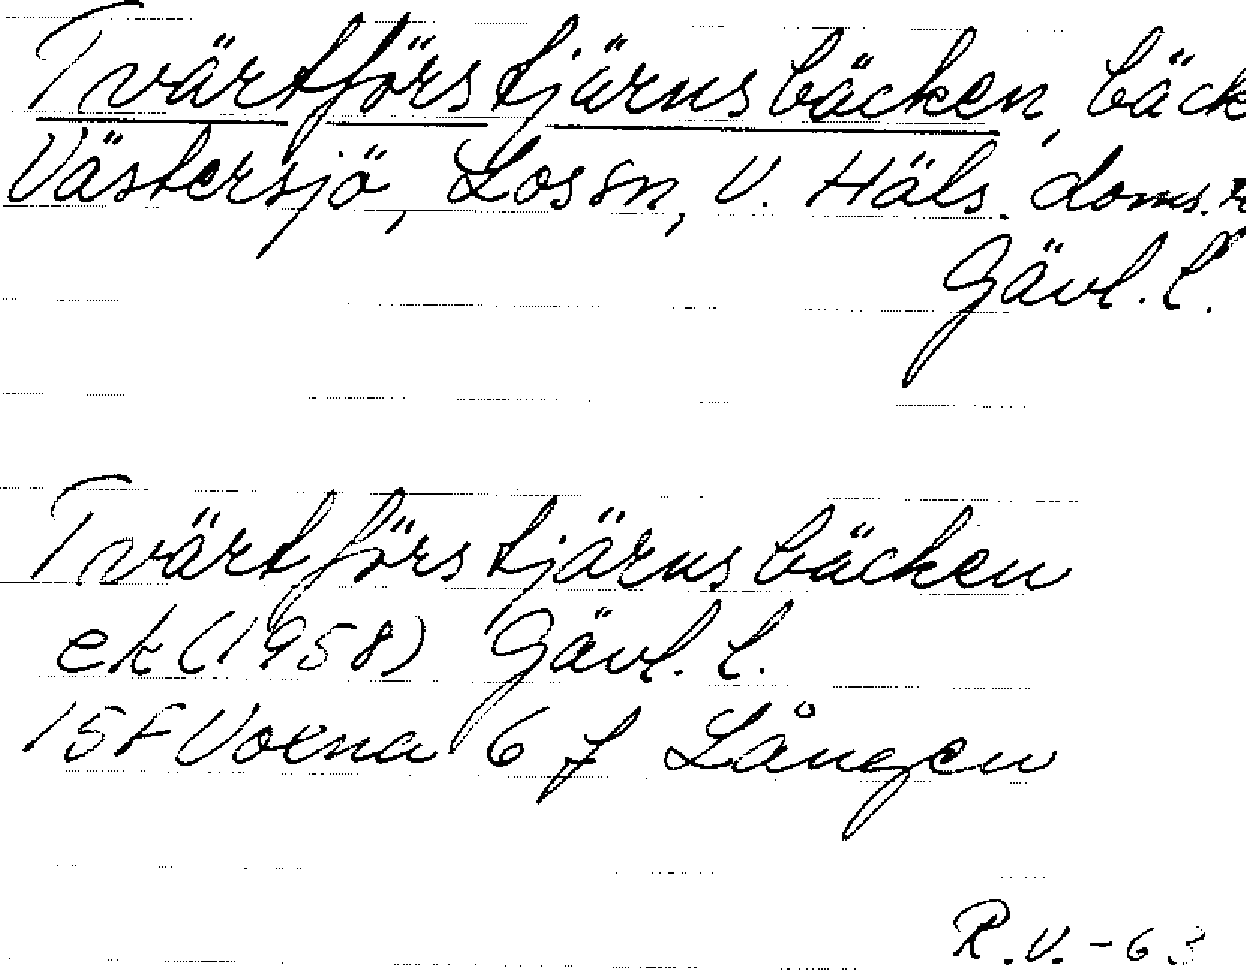 Tvärtförstjärnsbäcken, bäck
Västersjö, Los sn, V. Häls. doms.
Gävl. l.
Tvärtförstjärnsbäcken
ek (1958) Gävl. l.
15F Voxna 6 f Lången
R.V. -63